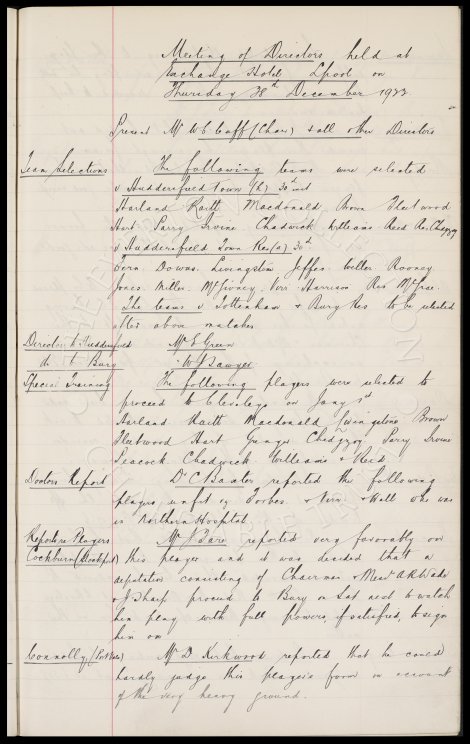 Meeting of Directors, held at
Exchange Hotel, Lpool on
Thursday 28th December 1922.
Present Mr W C Cuff (Chair) & all other Directors
Team Selections The following teams were selected
v Huddersfield Town (h) 30 inst
Harland. Raitt. Macdonald. Brown. Fleetwood
Hart. Parry. Irvine. Chadwick. Williams. Reed. Res. Chedgzoy
v Huddersfield Town Res (a) 30th
Fern. Downs. Livingstone. Jeffes. Weller. Rooney.
Jones. Miller. Forbes. Harrison. Res McGrae.
The teams v Tottenham & Bury Res to be selected
after above matches
Director to Huddersfield Mr E Green
do to Bury W J Sawyer
Special Training The following players were selected to
proceed to Cleveleys on Jany 1st
Harland Raitt Macdonald Livingstone Brown
Fleetwood Hart Ganger Chedgzoy Parry Irvine
Peacock. Chadwick Williams & Reid.
Doctors Report Dr C Baxter reported the following
players unfit viz Forbes & Virr & Wall who was
in Northern Hospital
Report on Players Mr J Bare reported very favorably on
Cockburn (Stockport) this player and it was decided that a
deputation consisting of Chairman & Messrs A R Wade
& J Sharp proceed to Bury on Sat next to watch
him play with full powers, if satisfied, to sign
him on
Connolly. Mr D. Kirkwood reported that he could
hardly judge this player's form on account
of the very heavy ground.